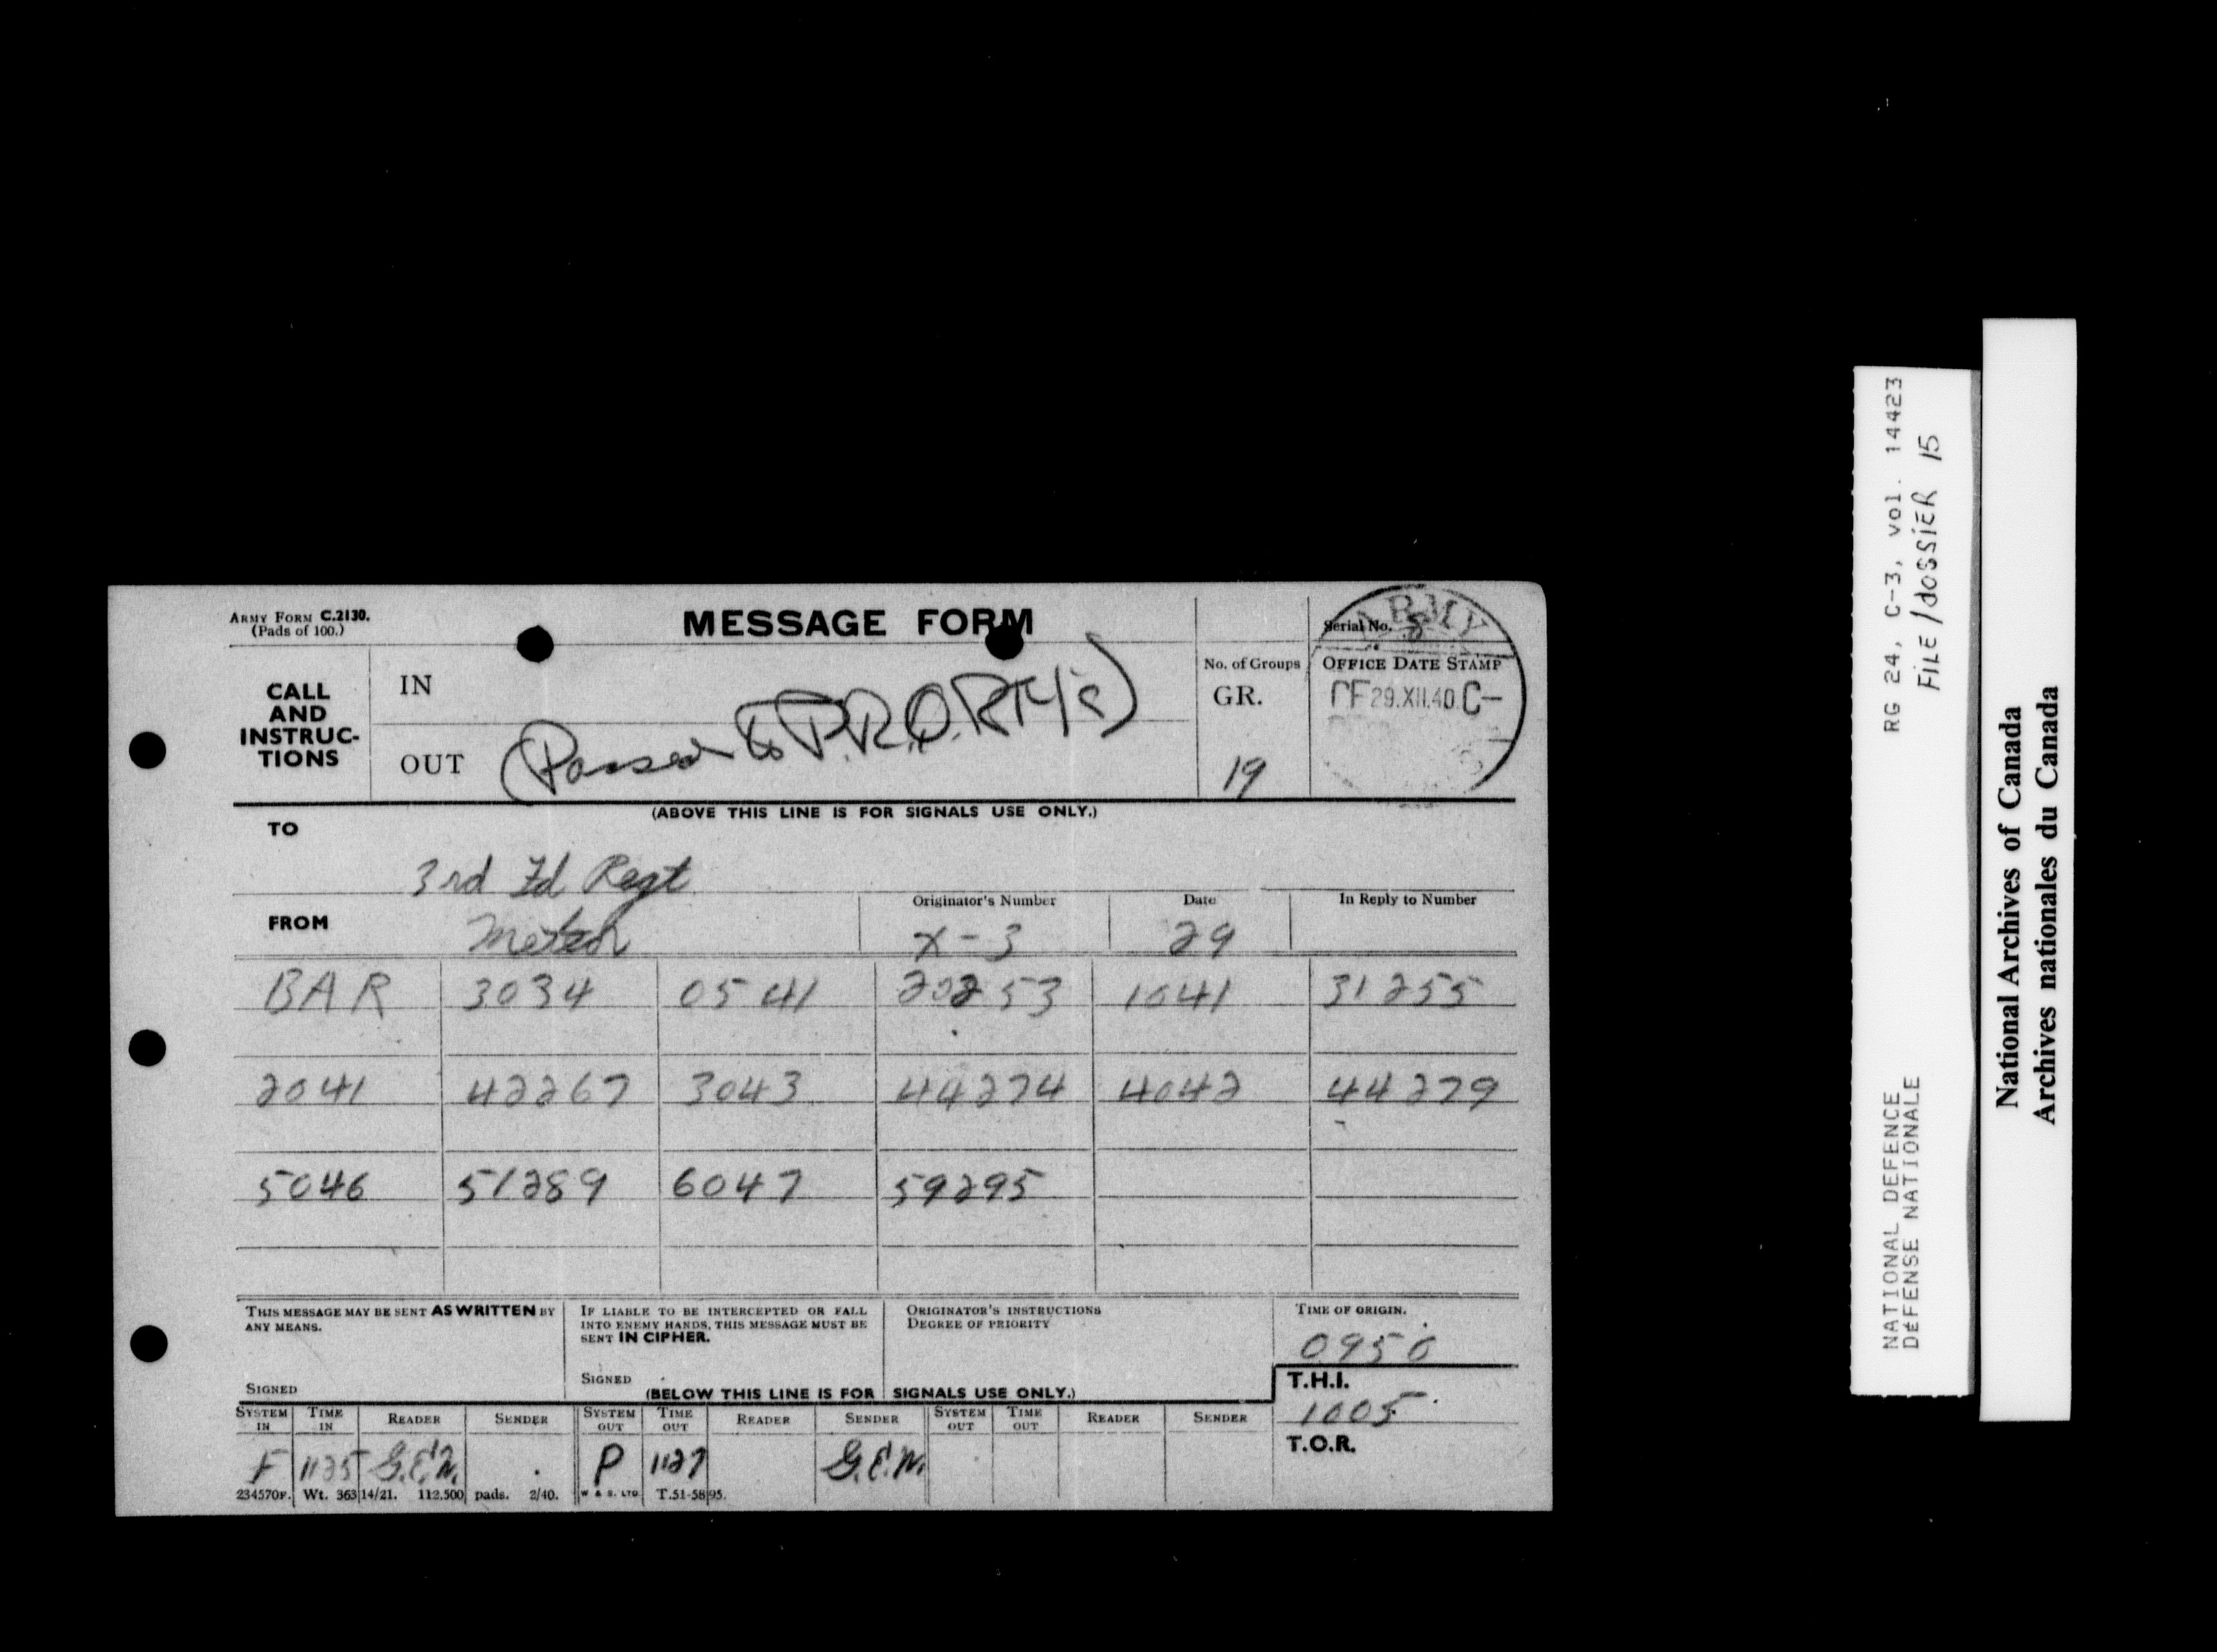 ARMY FORM C.2130.
(Pads of 100.)
MESSAGE FORM
Serial No. 8
ARMY
CALL AND INSTRUC-TIONS
IN
OUT
(Passed to P.R.O.
No. of Groups
GR.
19
OFFICE DATE STAMP
29.XII.40 C-
(ABOVE THIS LINE IS FOR SIGNALS USE ONLY.)
TO
3rd Fd Regt
FROM
Meteor
Originator's Number
X-3
Date
29
In Reply to Number
BAR 3034 0541 20253 1041 31255
2041 42267 3043 44274 4042 44279
5046 51289 6047 59295
THIS MESSAGE MAY BE SENT AS WRITTEN BY ANY MEANS.
SIGNED
IF LIABLE TO BE INTERCEPTED OR FALL INTO ENEMY HANDS, THIS MESSAGE MUST BE SENT IN CIPHER.
SIGNED
ORIGINATOR'S INSTRUCTIONS
DEGREE OF PRIORITY
TIME OF ORIGIN.
0950
(BELOW THIS LINE IS FOR SIGNALS USE ONLY.)
T.H.I.
1005
T.O.R.
SYSTEM IN TIME IN READER SENDER SYSTEM OUT TIME OUT READER SENDER SYSTEM OUT TIME OUT READER SENDER
F 1125 G.E.N. P 1127 G.E.N.
234570F. Wt. 36314/21. 112,500 pads. 2/40. W & S. LTD. T.51-5895.
RG 24, C-3, vol. 14423
FILE/dossiER 15
NATIONAL DEFENCE
DÉFENSE NATIONALE
National Archives of Canada
Archives nationales du Canada